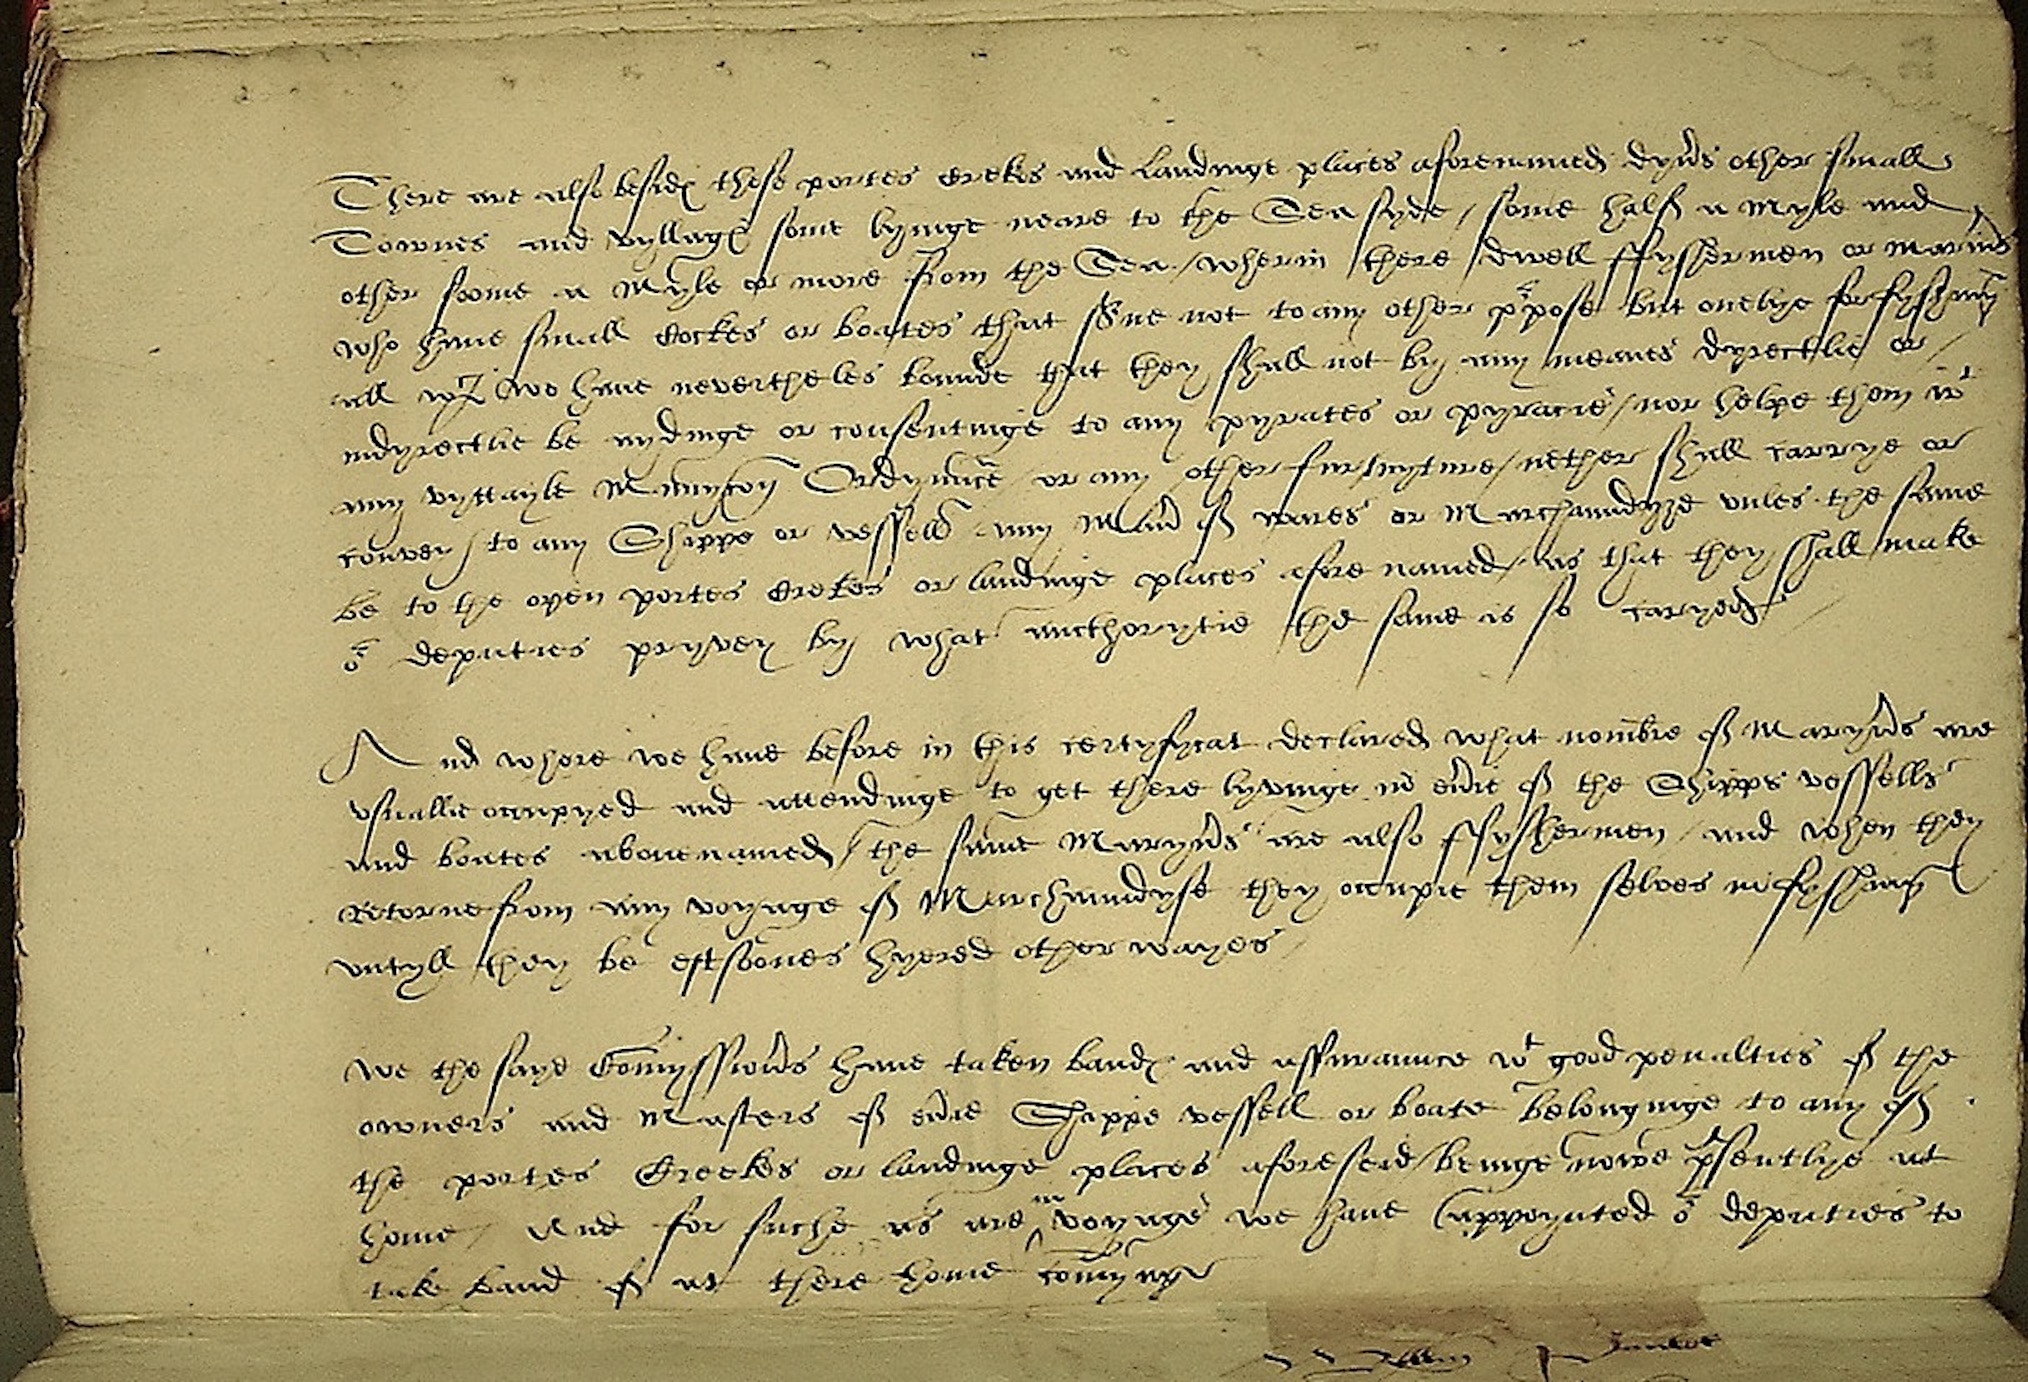 There are also besides these portes Crekes and Landinge places aforenamed dyu's other small
Townes and vyllages some lyinge neare to the Sea syde / some half a Myle and
other soome a Myle or more from the Sea / wherin there dwell ffyshermen or marin's
who haue small Cockes or boates that s'ue not to any other p'pose but onelye for fyshing
all wch we haue nevertheles bounde that they shall not by any meanes dyrectlie or /
indyrectlie be aydinge or consentinge to any pyrates or pyracie / nor helpe them wt
any vyttayle Munycyon Ordynance or any other furnyture / nether shall carrye or
convey to any Shippe or vessell any man' of wares or Marchaundyze vnles the same
be to the open portes Crekes or landinge places afore named / as that they shall make
or deputies pryvey by what aucthorytie the same is so caryed
And where we haue before in this certyfycat declared what nombre of Maryn's are
vsuallie occupyed and attendinge to get there lyvinge in eu'ie of the Shipps vessells
and boates abouenamed / the same Maryn's are also ffyshermen / and when they
Retorne from any voyage of Marchaundyse they occupie them selves in fyshing
vntyll they be eftsoones hyered other wayes
We the saye Comyssion's haue taken bandes and assuraunce wt good penalties of the
owners and Masters of eu'ie Shippe vessell or boate belonginge to any of
the portes Creekes or landinge places aforeseid / beinge nowe p'sentlye at
home / And for suche as are in voyage we haue appoynted or deputies to
take band of at there home comynge